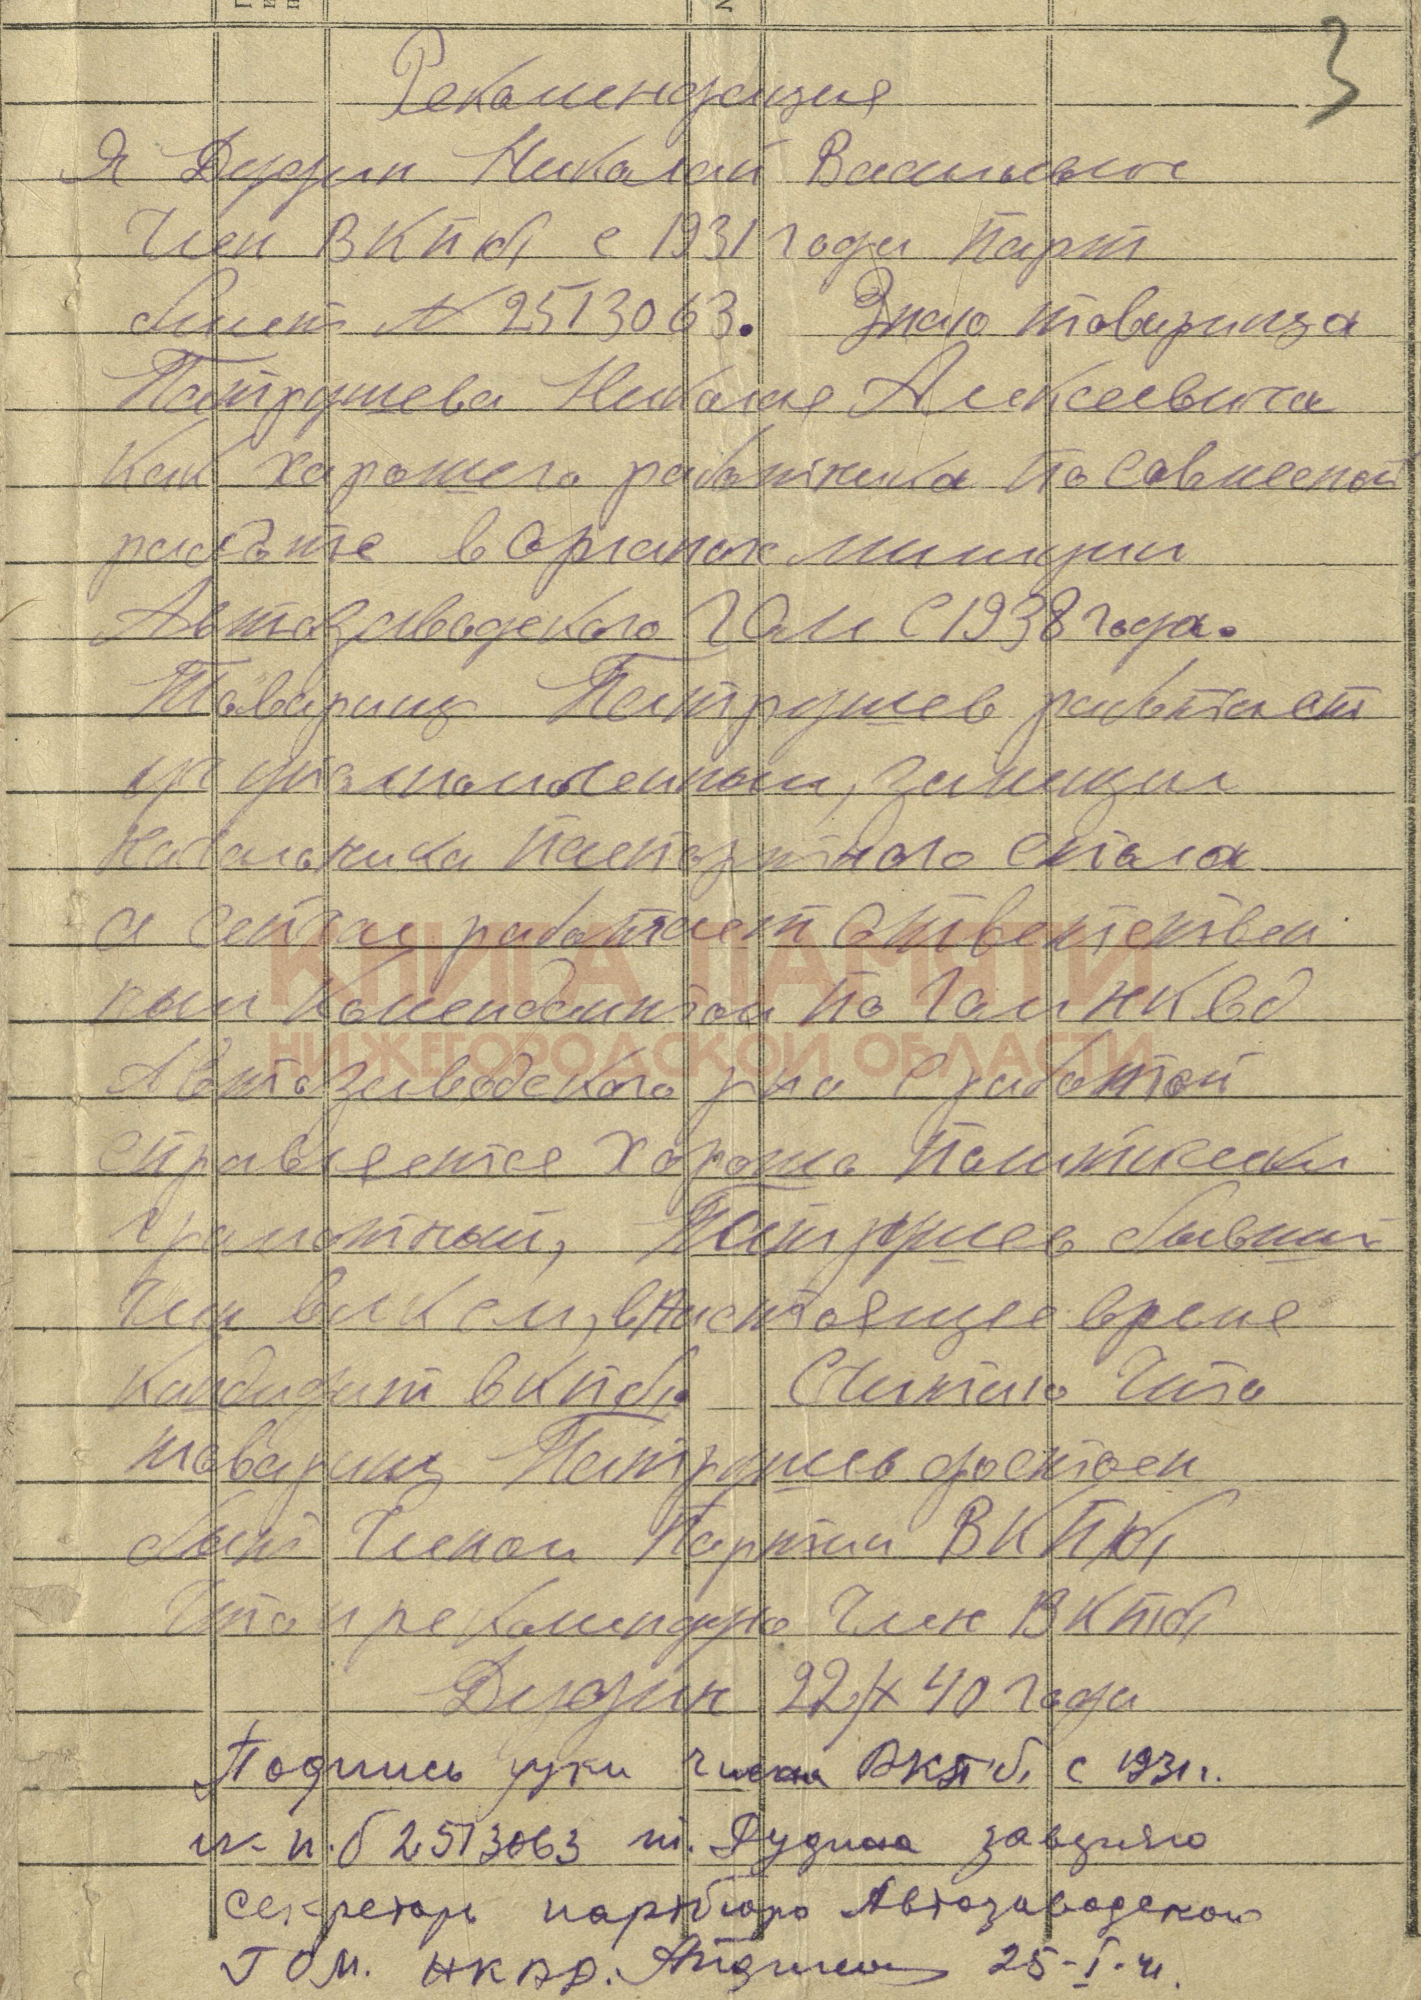 3
Рекомендация
Я Дудин Николай Васильевич
Член ВКПб с 1931 года Парт
билет № 2513063. Знаю товарища
Патрушева Николая Алексеевича
как харошего работника по совмесной
работе в органах милиции
Автозаводского ГОМ с 1938 года.
Товарищ Патрушев работает
уполномоченным, замещал
начальника паспортного стола
а сейчас работает ответствен
ным комендантом по Гом НКВД
Автозаводского р-на с работой
справляется хорошо политически
грамотный, Патрушев бывший
член ВЛКСМ, в настоящее время
кандидат ВКПб. Считаю что
товарищ Патрушев достоен
быть членом Партии ВКПб
Что и рекоминдую Член ВКПб
Дудин 22/X 40 года
Подпись руки члена ВКПб, с 1931 г.
п.б 2513063 т. Дудина заверяю
секретарь партбюро Автозаводского
ГОМ. НКВД. 25-I-41.
КНИГА ПАМЯТИ
НИЖЕГОРОДСКОЙ ОБЛАСТИ